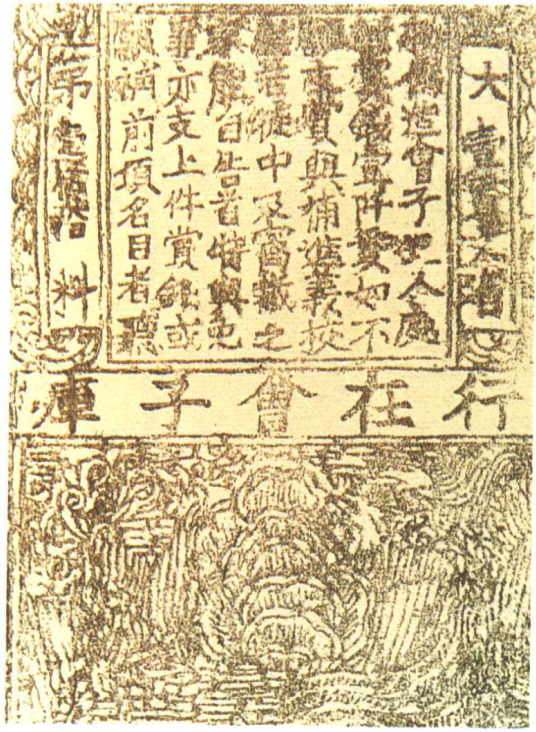 大壹貫文省
偽造會子犯人處
賞錢壹阡貫如不
支賞與補進義校
若徒中及窩藏之
能自告首特與免
亦支上件賞錢或
願補前項名目者聽
料
行在會子庫